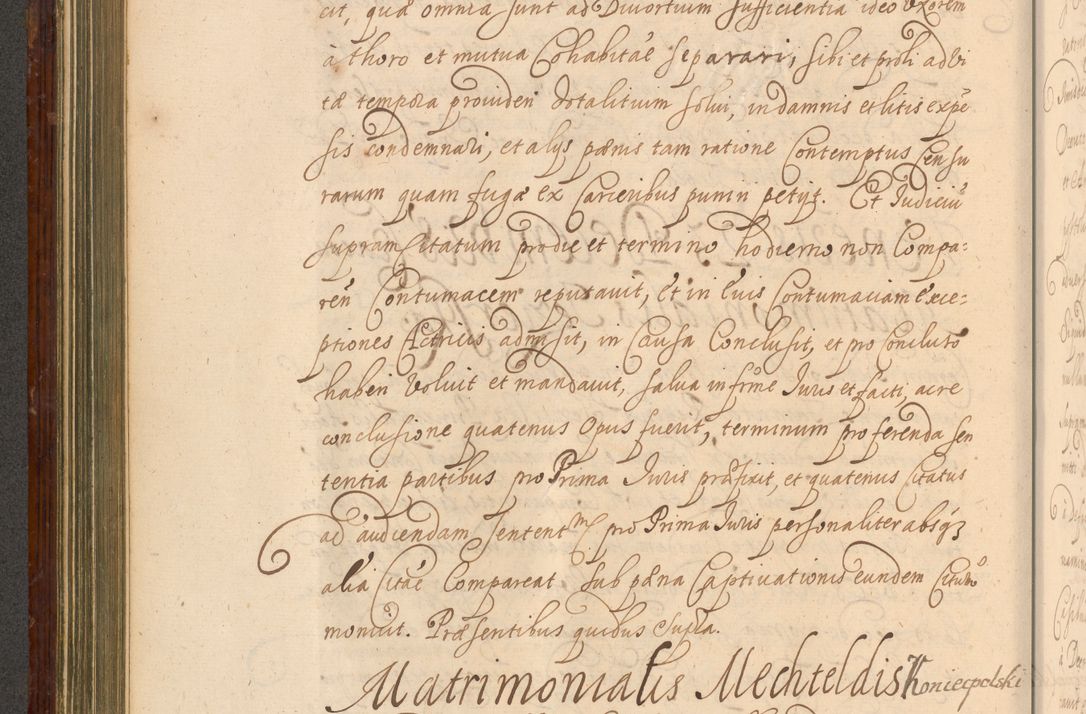 cit, quæ omnia sunt ad Divortium sufficientia ideo Uxorem
à thoro et mutua Cohabitãe separari, sibi et proli ad vi
tæ tempora provideri dotalitium solvi, in damnis et litis expẽ
sis condemnari, et alÿs pænis tam ratione Contemptus Censu
rarum quam fugæ ex Carceribus puniri petÿt. Et Judiciũ
supram Citatum pro die et termino hodierno non Compa=
reñ Contumacem reputavit, Et in Eius Contumaciam Exce=
ptiones Actricis admisit, in Causa Conclusit, et pro Concluso
haberi voluit et mandavit, salva infrme Juris et facti, acre
conclusione quatenus Opus fuerit, terminum pro ferenda sen
tentia partibus pro Prima Juris præfixit, et quatenus Citatus
ad audiendam Sententm pro Prima Juris personaliter absq3
alia Citãe Compareat sub pæna Captivationis eundem
monuit. Præsentibus quibus supra.
Matrimonialis Mechteldis Koniecpolski